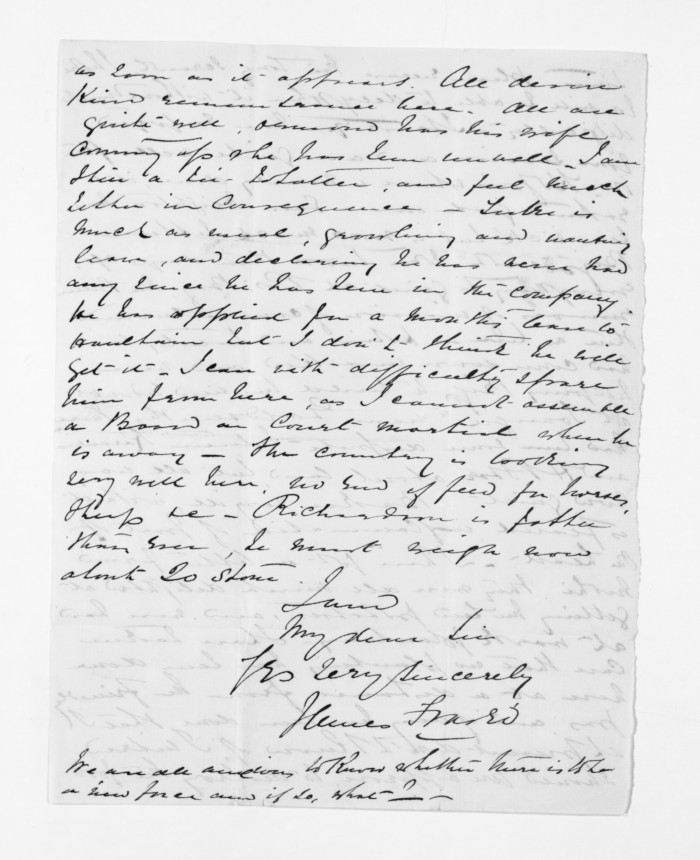 as soon as it appears. All desire
Kind remembrance here. All are
quite well, Ormond has his wife
coming up she has been unwell - I am
thin a tee-totaller, and feel much
better in consequence - is
much as usual, growling and wanting
leave, and declaring he has never had
any since he has been in the company
he has applied for a months leave to
but I don't think he will
get it - I can with difficulty spare
him from here, as I cannot assemble
a Board or Court martial when he
is away - The country is looking
very well here, no end of feed for horses,
sheep &c - Richardson is fatter
than ever, he must weigh now
about 20 stone.
I am
My dear Sir
Yrs very sincerely
James Fraser
We are all anxious to know whether there is to be
a new force and if so, what? -